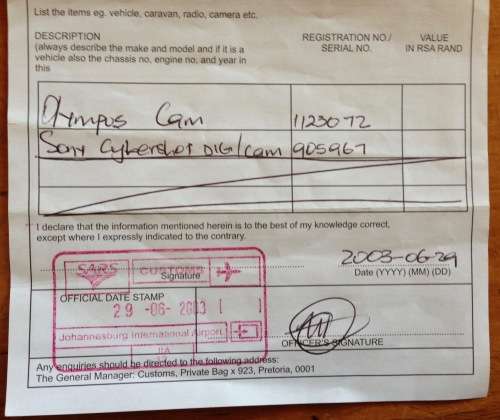 List the items eg. vehicle, caravan, radio, camera etc.
DESCRIPTION
(always describe the make and model and if it is a
vehicle also the chassis no, engine no, and year in
this
REGISTRATION NO./
SERIAL NO.
VALUE
IN RSA RAND
Olympus Cam 1123072
Sony Cybershot DIG/cam 905967
I declare that the information mentioned herein is to the best of my knowledge correct,
except where I expressly indicated to the contrary.
2003-06-29
Signature
Date (YYYY) (MM) (DD)
SARS CUSTOMS
OFFICIAL DATE STAMP
29 -06- 2003
Johannesburg International Airport
OFFICER'S SIGNATURE
Any enquiries should be directed to the following address:
The General Manager: Customs, Private Bag x 923, Pretoria, 0001